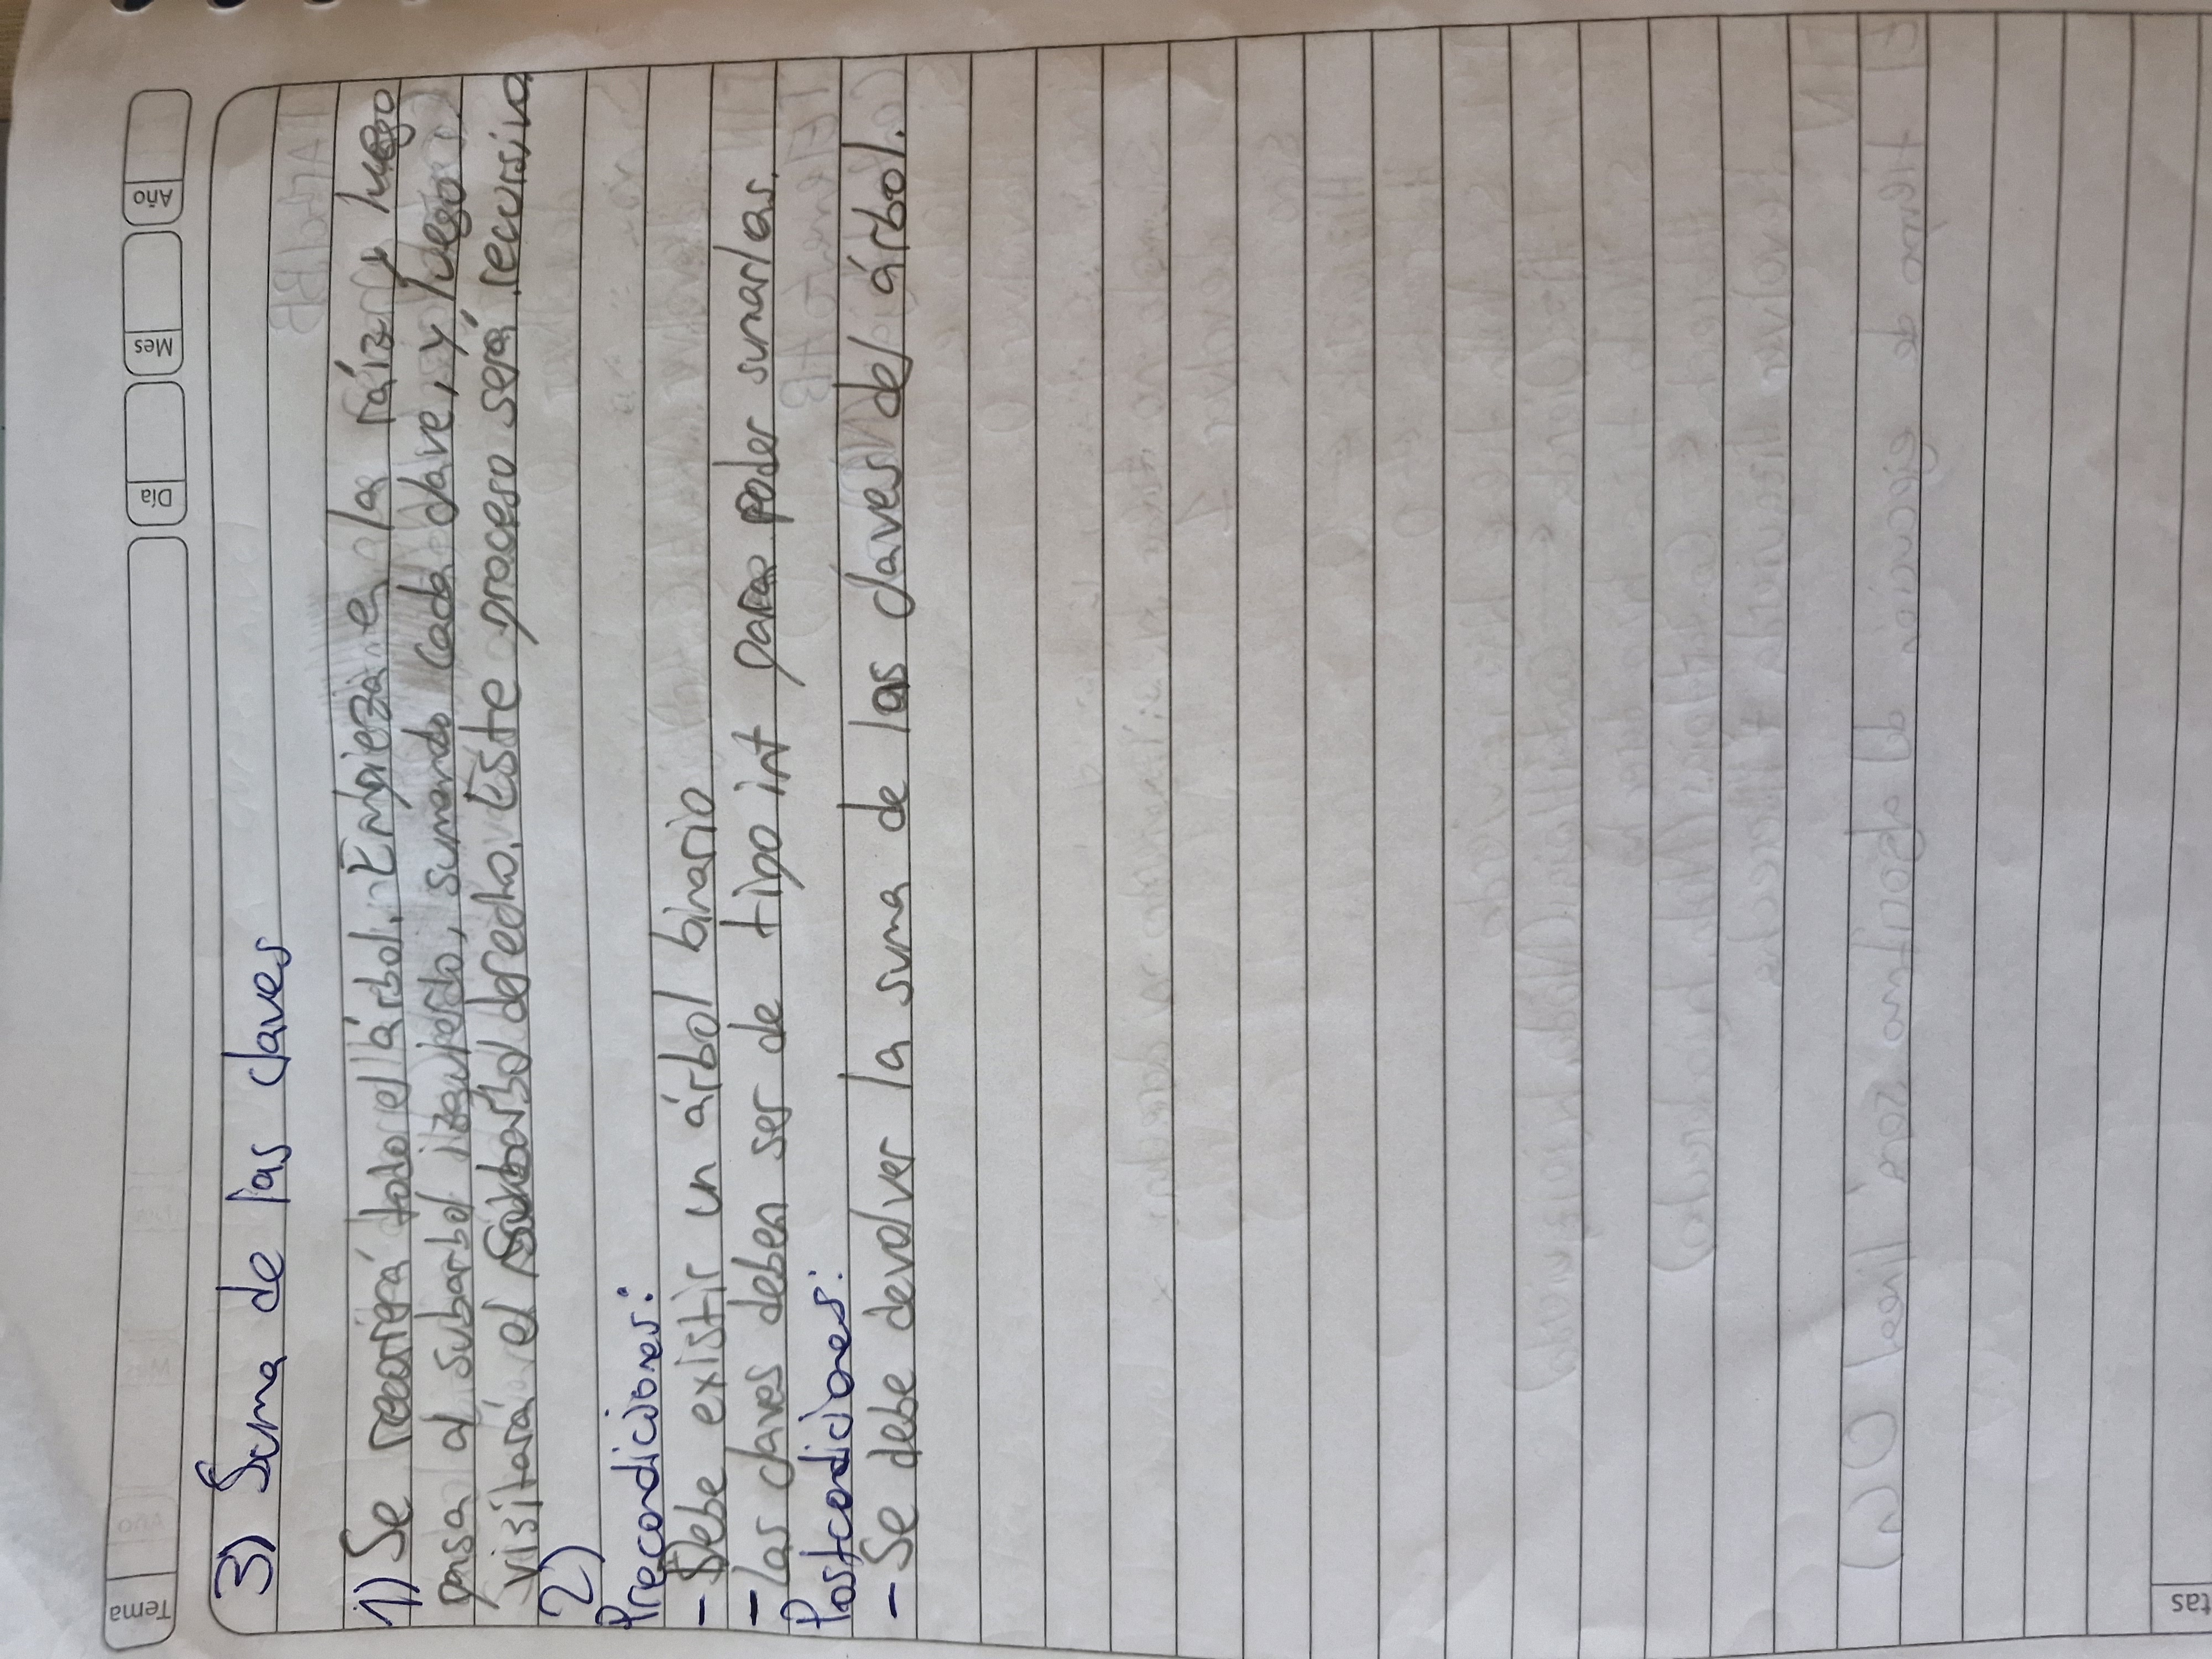 Tema
Día
Mes
Año
3) Suma de las claves
1) Se recorrerá todo el árbol. Empieza en la ráiz y luego
pasa al subarbol izquierdo, sumando cada clave, y luego
visitará el subarbol derecho. Este proceso será recursivo
2)
Precondiciones:
- Debe existir un árbol binario
- Las claves deben ser de tipo int para poder sumarlas.
Postcondiciones:
- Se debe devolver la suma de las claves del árbol.
tas